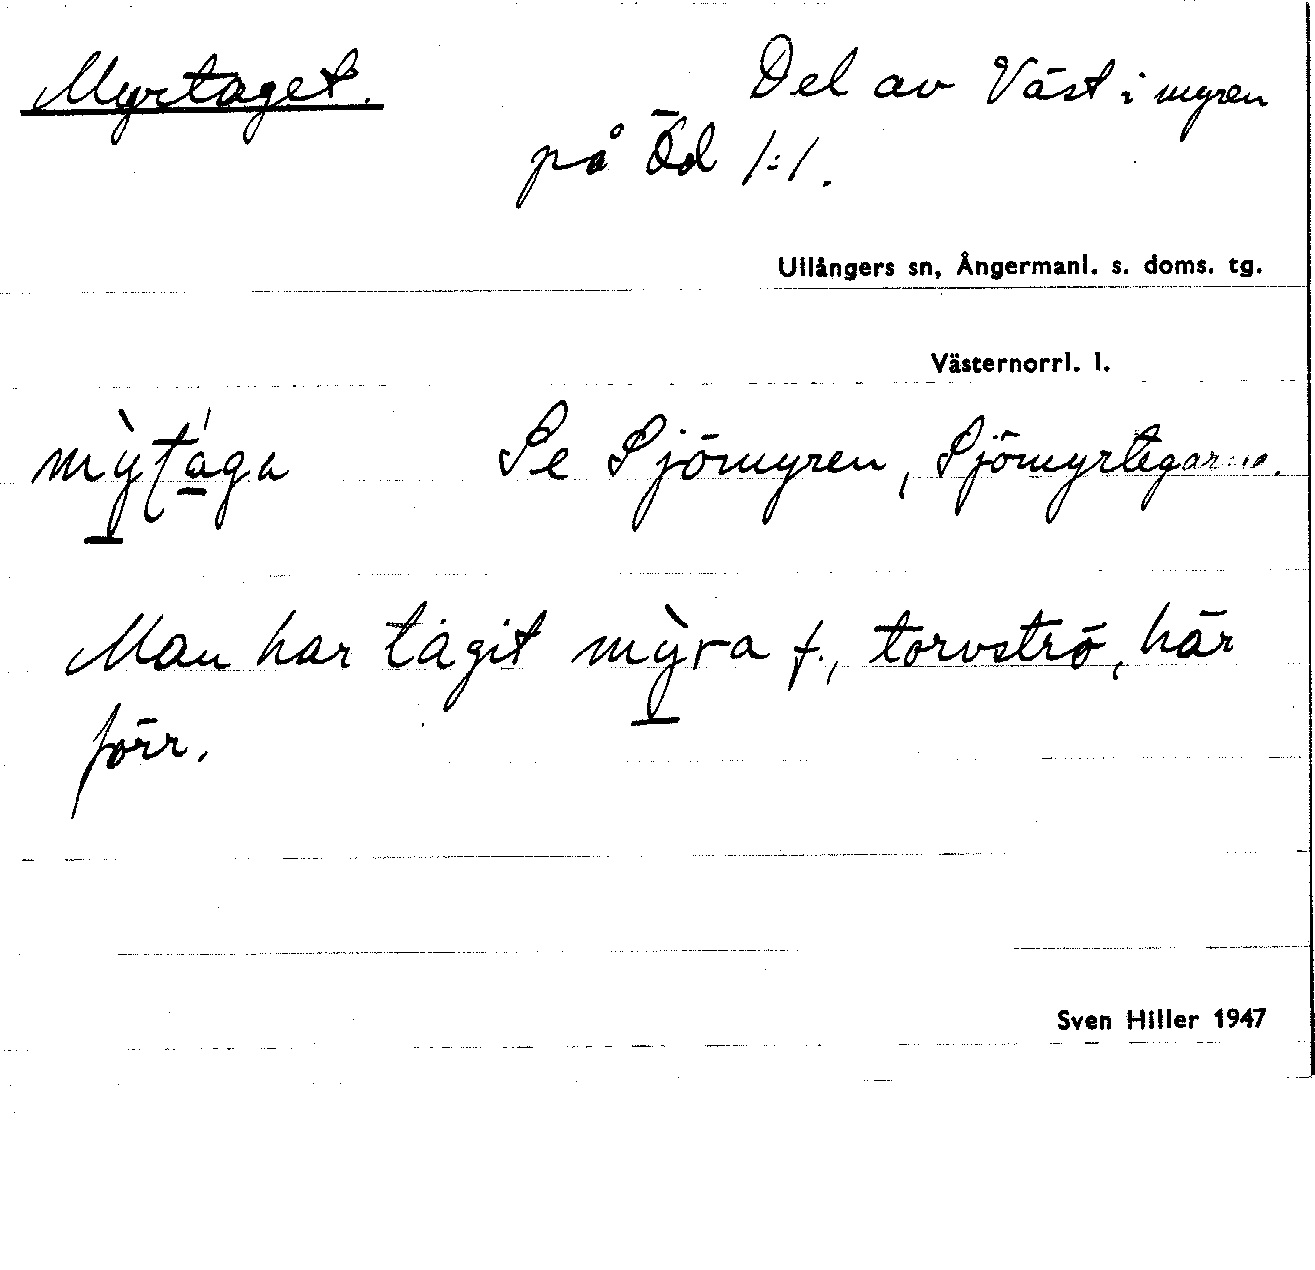 Myrtaget. Del av Väst i myren
på Öd 1:1.
Ullångers sn, Ångermanl. s. doms. tg.
Västernorrl. l.
mỳtága Se Sjömyren, Sjömyrtegarna.
Man har tagit mỳra f., torvströ, här
förr.
Sven Hiller 1947